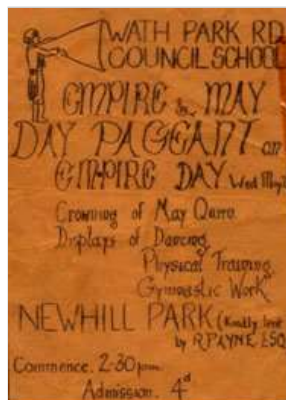 WATH PARK RD
COUNCIL SCHOOL
EMPIRE & MAY
DAY PAGEANT on
EMPIRE DAY Wed May
Crowning of May Queen
Displays of Dancing
Physical Training
Gymnastic Work
NEWHILL PARK (Kindly lent
by R PAYNE ESQ
Commence. 2-30 p.m.
Admission. 4d